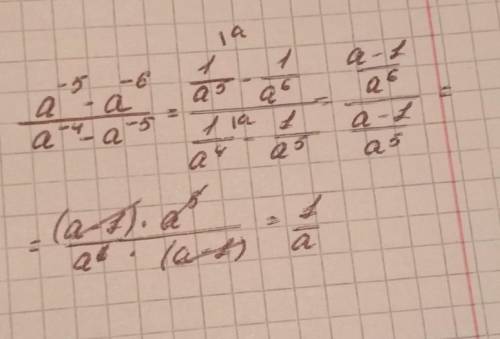 (a⁻⁵ - a⁻⁶)/(a⁻⁴ - a⁻⁵) = (1/a⁵ \a - 1/a⁶)/(1/a⁴ \a - 1/a⁵) = ((a-1)/a⁶)/((a-1)/a⁵) =
= ((a-1) · a⁵)/(a⁶ · (a-1)) = 1/a